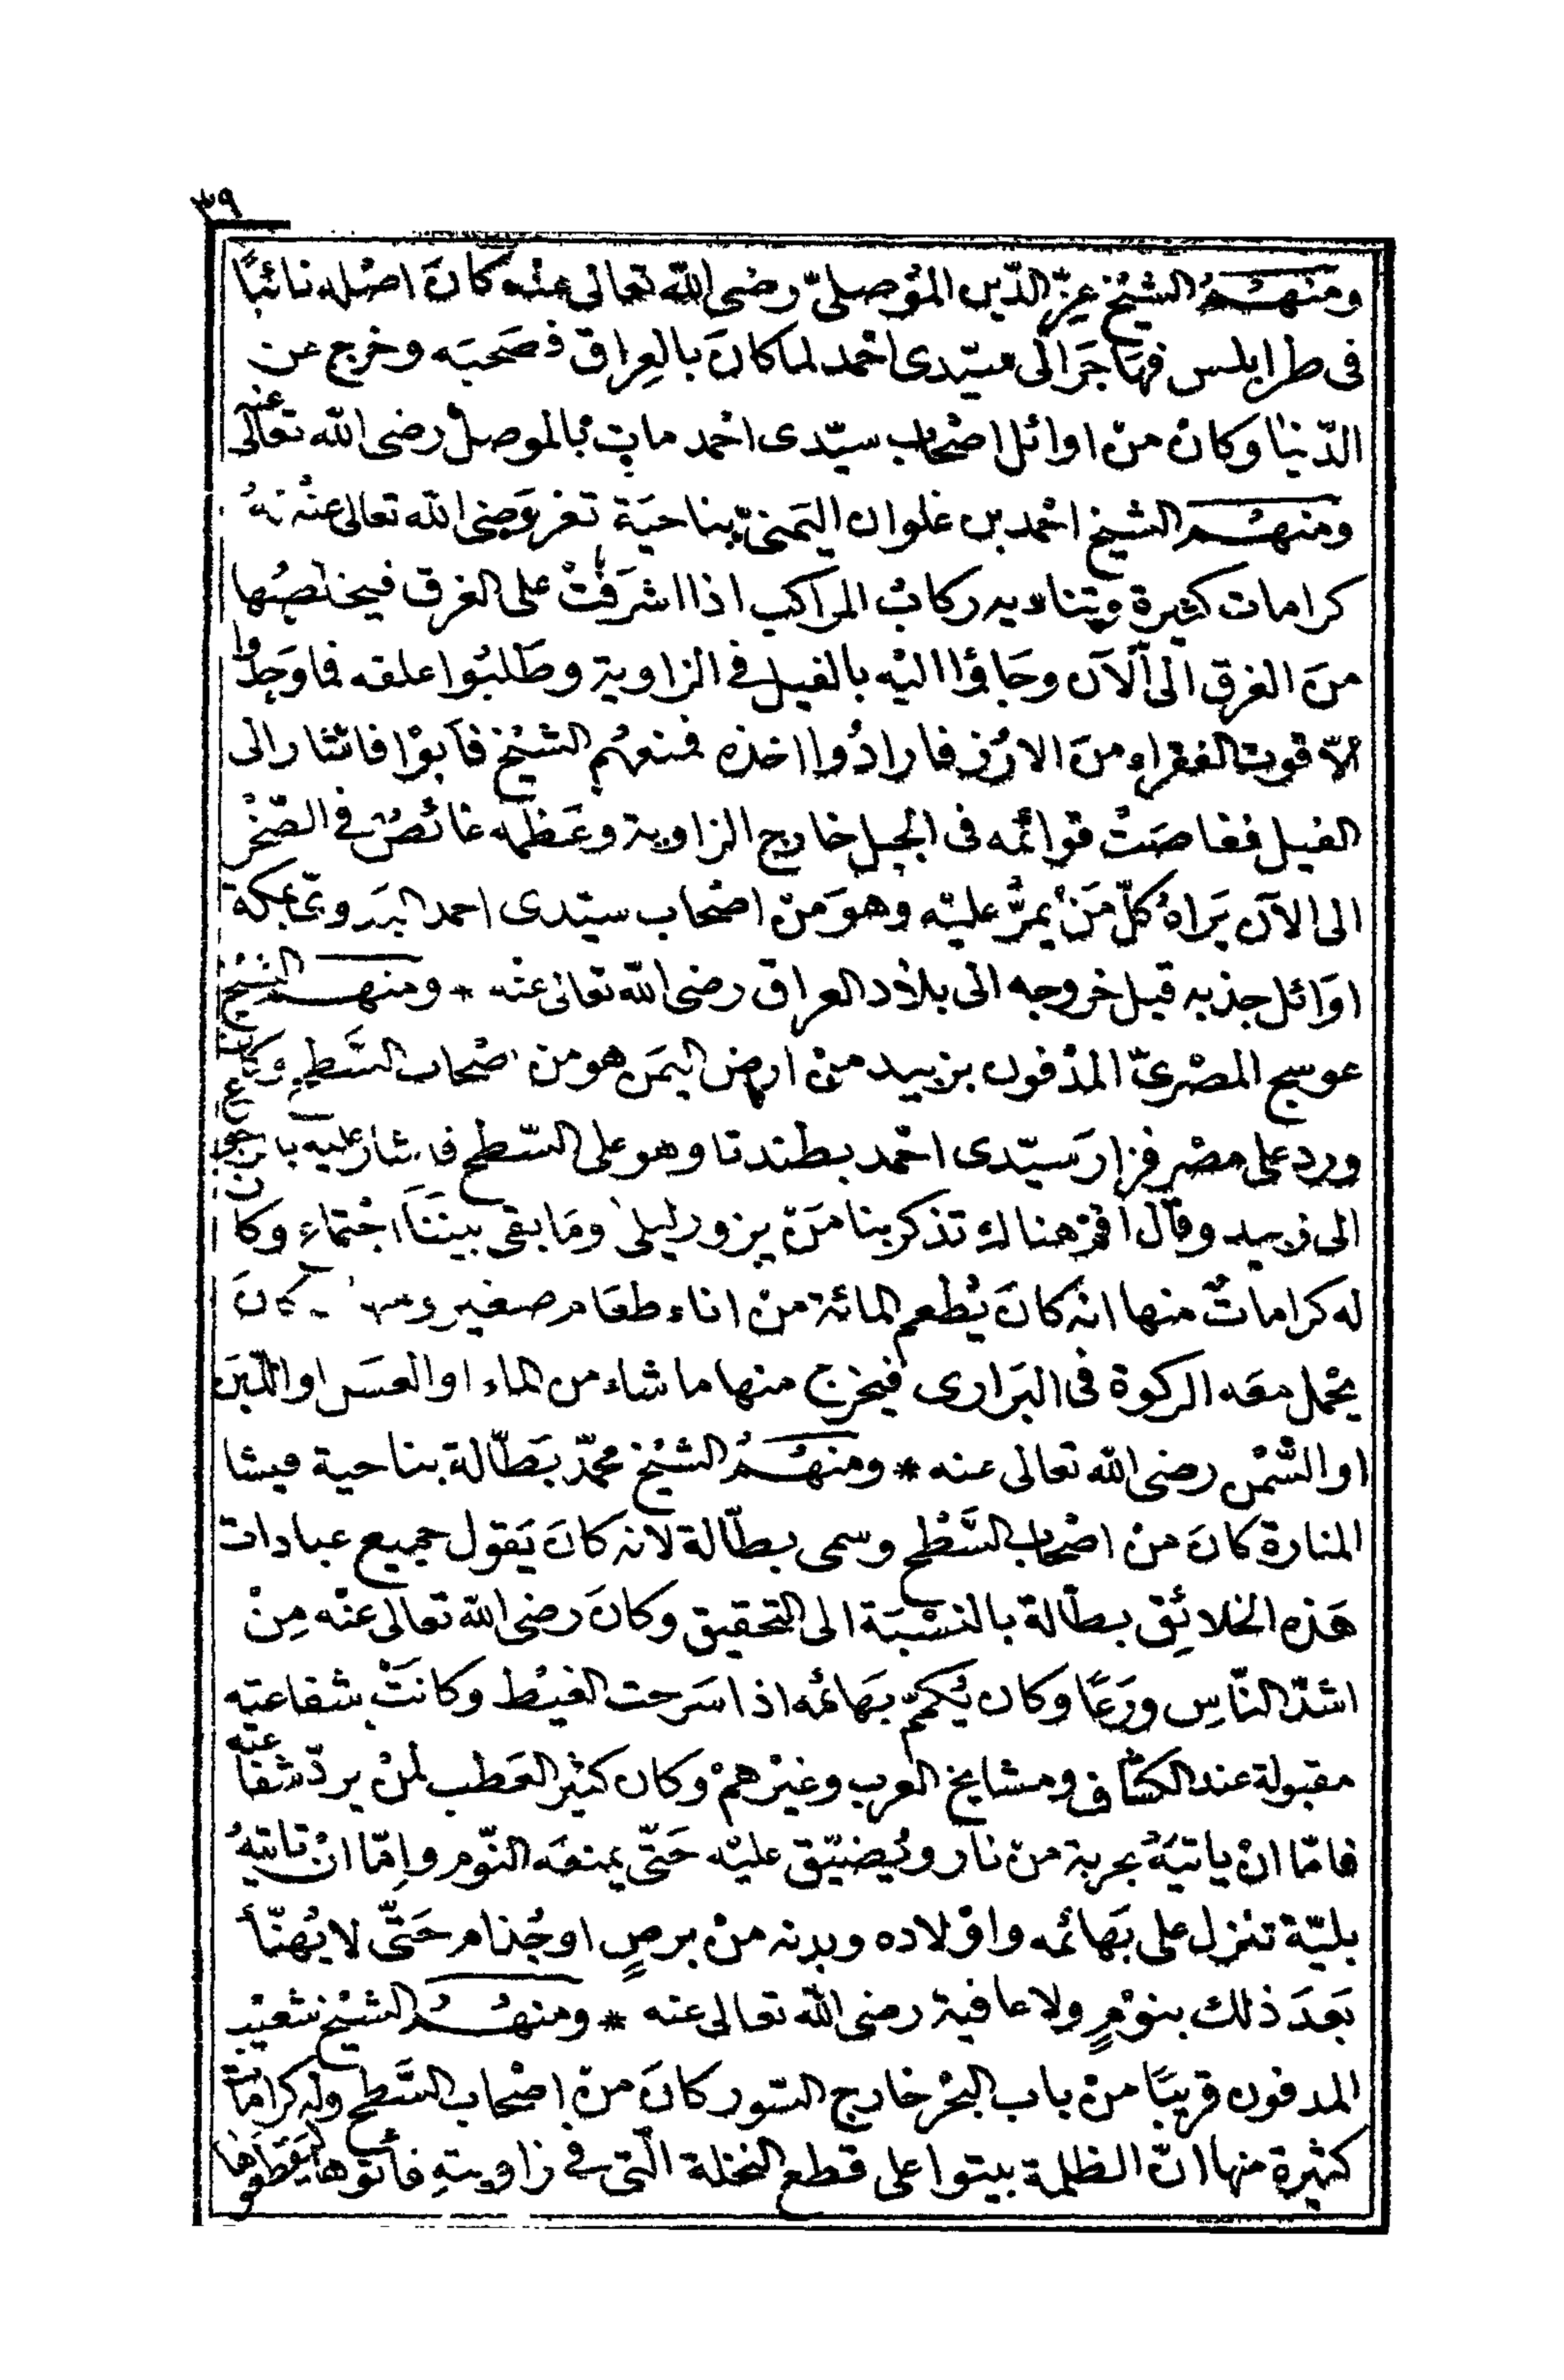 ٣٩
ومنهم الشيخ عزّ الدّين المُوصليّ رضى الله تعالى عنه كانَ اصْله نائبًا
فى طرابلس فهَاجَرَ الى سيّدى احْمد لما كانَ بالعِراق فصَحبَه وخرج عن
الدّنيا وكانْ منْ اوائل اصْحاب سيّدى احْمد مات بالموصلْ رضى الله تعالى عنه
ومنهم الشيخ احْمد بن علوان اليَمنىّ بناحيَة تعز رَضى الله تعالى عنْه لهُ
كرامات كثيرة ويتناديه ركابُ المراكب اذا اشرَفتْ على الغرق فيخلصُها
منَ الغرق الى اْلآن وجَاؤا اليْه بالفيل فى الزاوية وطَلبُوا علفه فماوَجدُوا
الاّ قوت الفقراء منَ الارُز فارادُوا اخذه فمنعهُم الشيْخ فاَبوْا فاشار الى
الفيل فغاصَتْ قوائمُه فى الجبل خارج الزاوية وعَظمه غائصٌ فى الصّخْر
الى الآن يَراهُ كلّ مَنْ يمرُّ عليْه وهوَ منْ اصْحاب سيّدى احمد البَدوىّ بمكة
اوَائل جذبه قبل خروجه الى بلاد العراق رضى الله تعالى عنْه * ومنهم الشيخ
عوسج المصْرىّ المدْفون بزبيد منْ ارض اليمَن هو من اصْحاب السَّطح وكان
ورد على مصْر فزارَ سيّدى احْمد بطندتا وهو على السّطح فاشار عليْه بالرجوع
الى زبيد وقال اقمْ هناك تذكر بنا منْ يزور ليلىٰ ومَا بقى بينَنَا اجْتماع وكان
له كراماتٌ منها انه كانَ يُطْعم المائة منْ اناء طعَام صغير ومنها انه كانَ
يحْمل معَه الركوة فى البَرارى فيخرج منها ما شاء من الماء او العسَل او اللّبَن
او السَّمْن رضى الله تعالى عنه * ومنهُمُ الشيْخ محمّد بَطّالة بناحية ميشا
المنارة كانَ منْ اصْحاب السَّطْح وسمى بطّالة لانه كانَ يَقول جميع عبادات
هَذه الخلائِق بطّالة بالنسْبَة الى التحقيق وكانَ رضى الله تعالى عنْه مِنْ
اشدّ النّاسِ ورَعًا وكان يُكمّم بَهائمه اذا سَرحت الغيْط وكانَتْ شفاعته
مقبولة عند الكشّاف ومشايخ العرب وغيْرهمْ وكان كثيْر العَطب لمنْ يردّ شفاعته
فامّا انْ ياتيَهُ بحربة منْ نار ويُضيّق عليْه حَتّى يمنعَه النّوم وإمّا انْ تاتيَهُ
بليّة تنْزل على بَهائمه واوْلاده وبدنه منْ برصٍ اوجُذام حَتّى لا يُهنّأ
بَعدَ ذلك بنوْمٍ ولا عافية رضى الله تعالى عنه * ومنهُمُ الشيْخ شعيْب
المدفون قريبًا منْ باب البحْر خارج السّور كانَ منْ اصْحاب السَّطح وله كراماتٌ
كثيْرة منها انّ الظلمة بيتوا على قطع النخلة الّتى فى زاويتهِ فأتوها ليَقطعوها